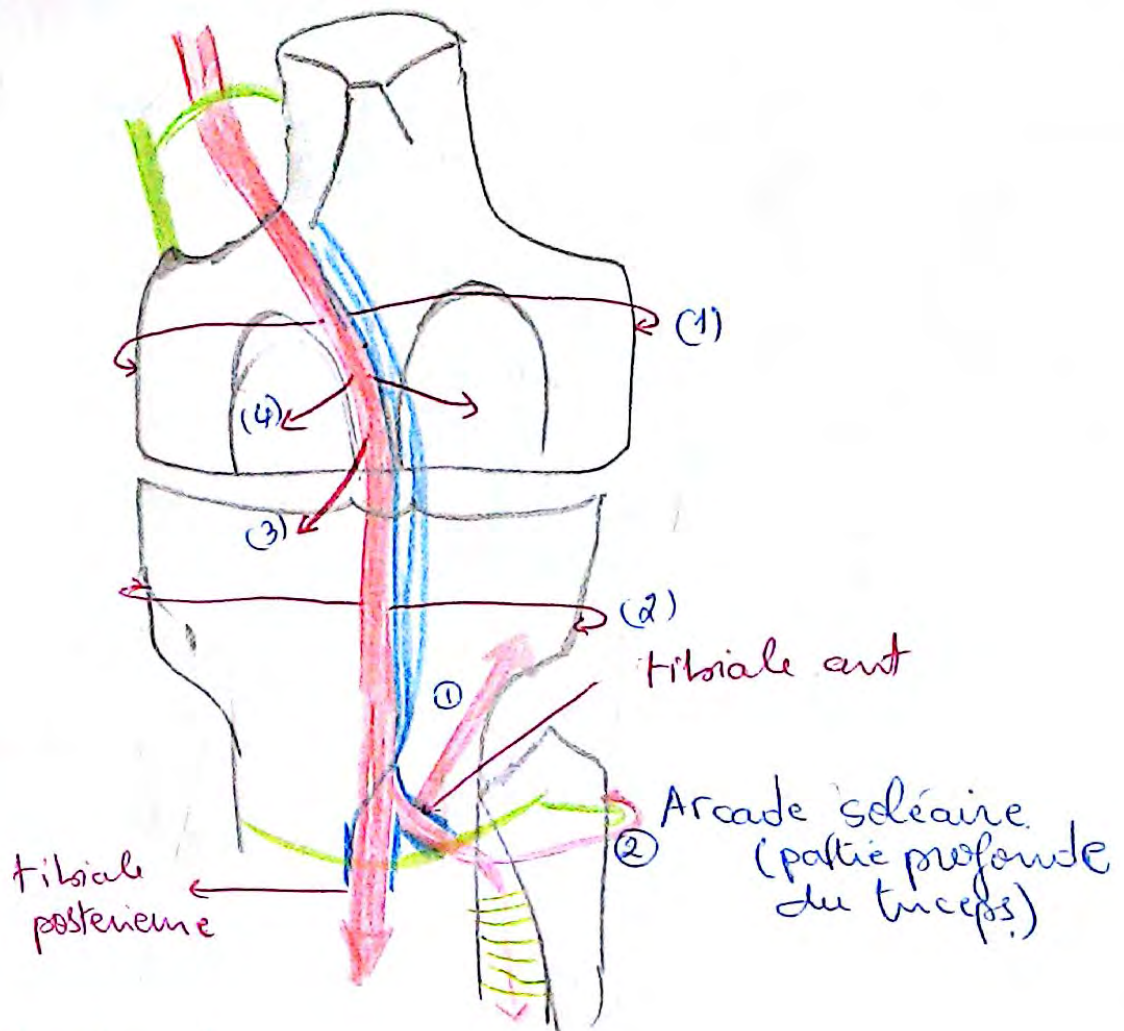 (1)
(4)
(3)
(2)
tibiale ant
①
Arcade soléaire
(partie profonde
du triceps)
②
tibiale
posterieure